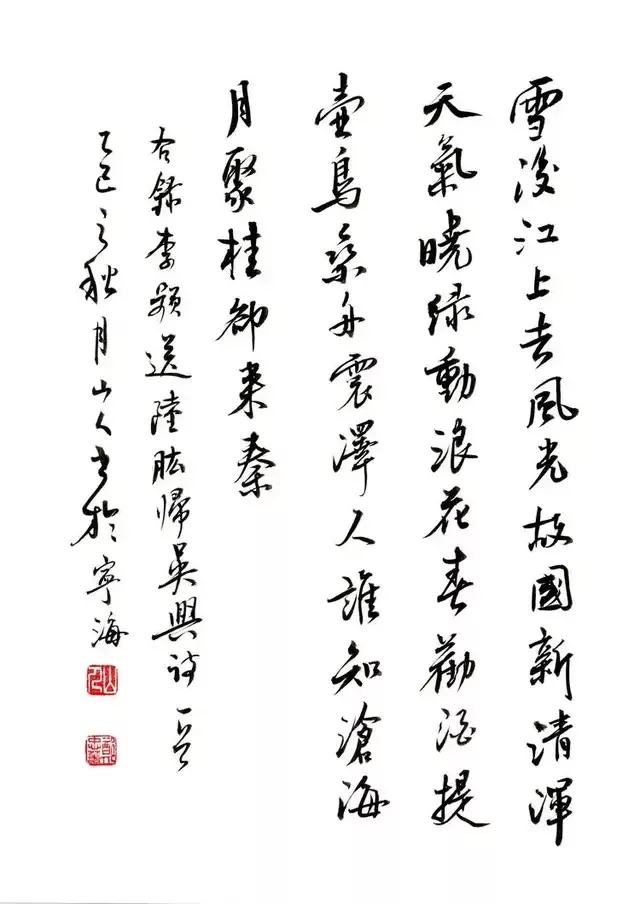 雪後江上去風光故國新清渾
天氣曉绿動浪花春勸酒提
壺鳥乘舟震澤人誰知滄海
月聚桂卻来秦
右錄李頻送陸肱歸吳興詩一首
乙巳之秋月山人書於寧海